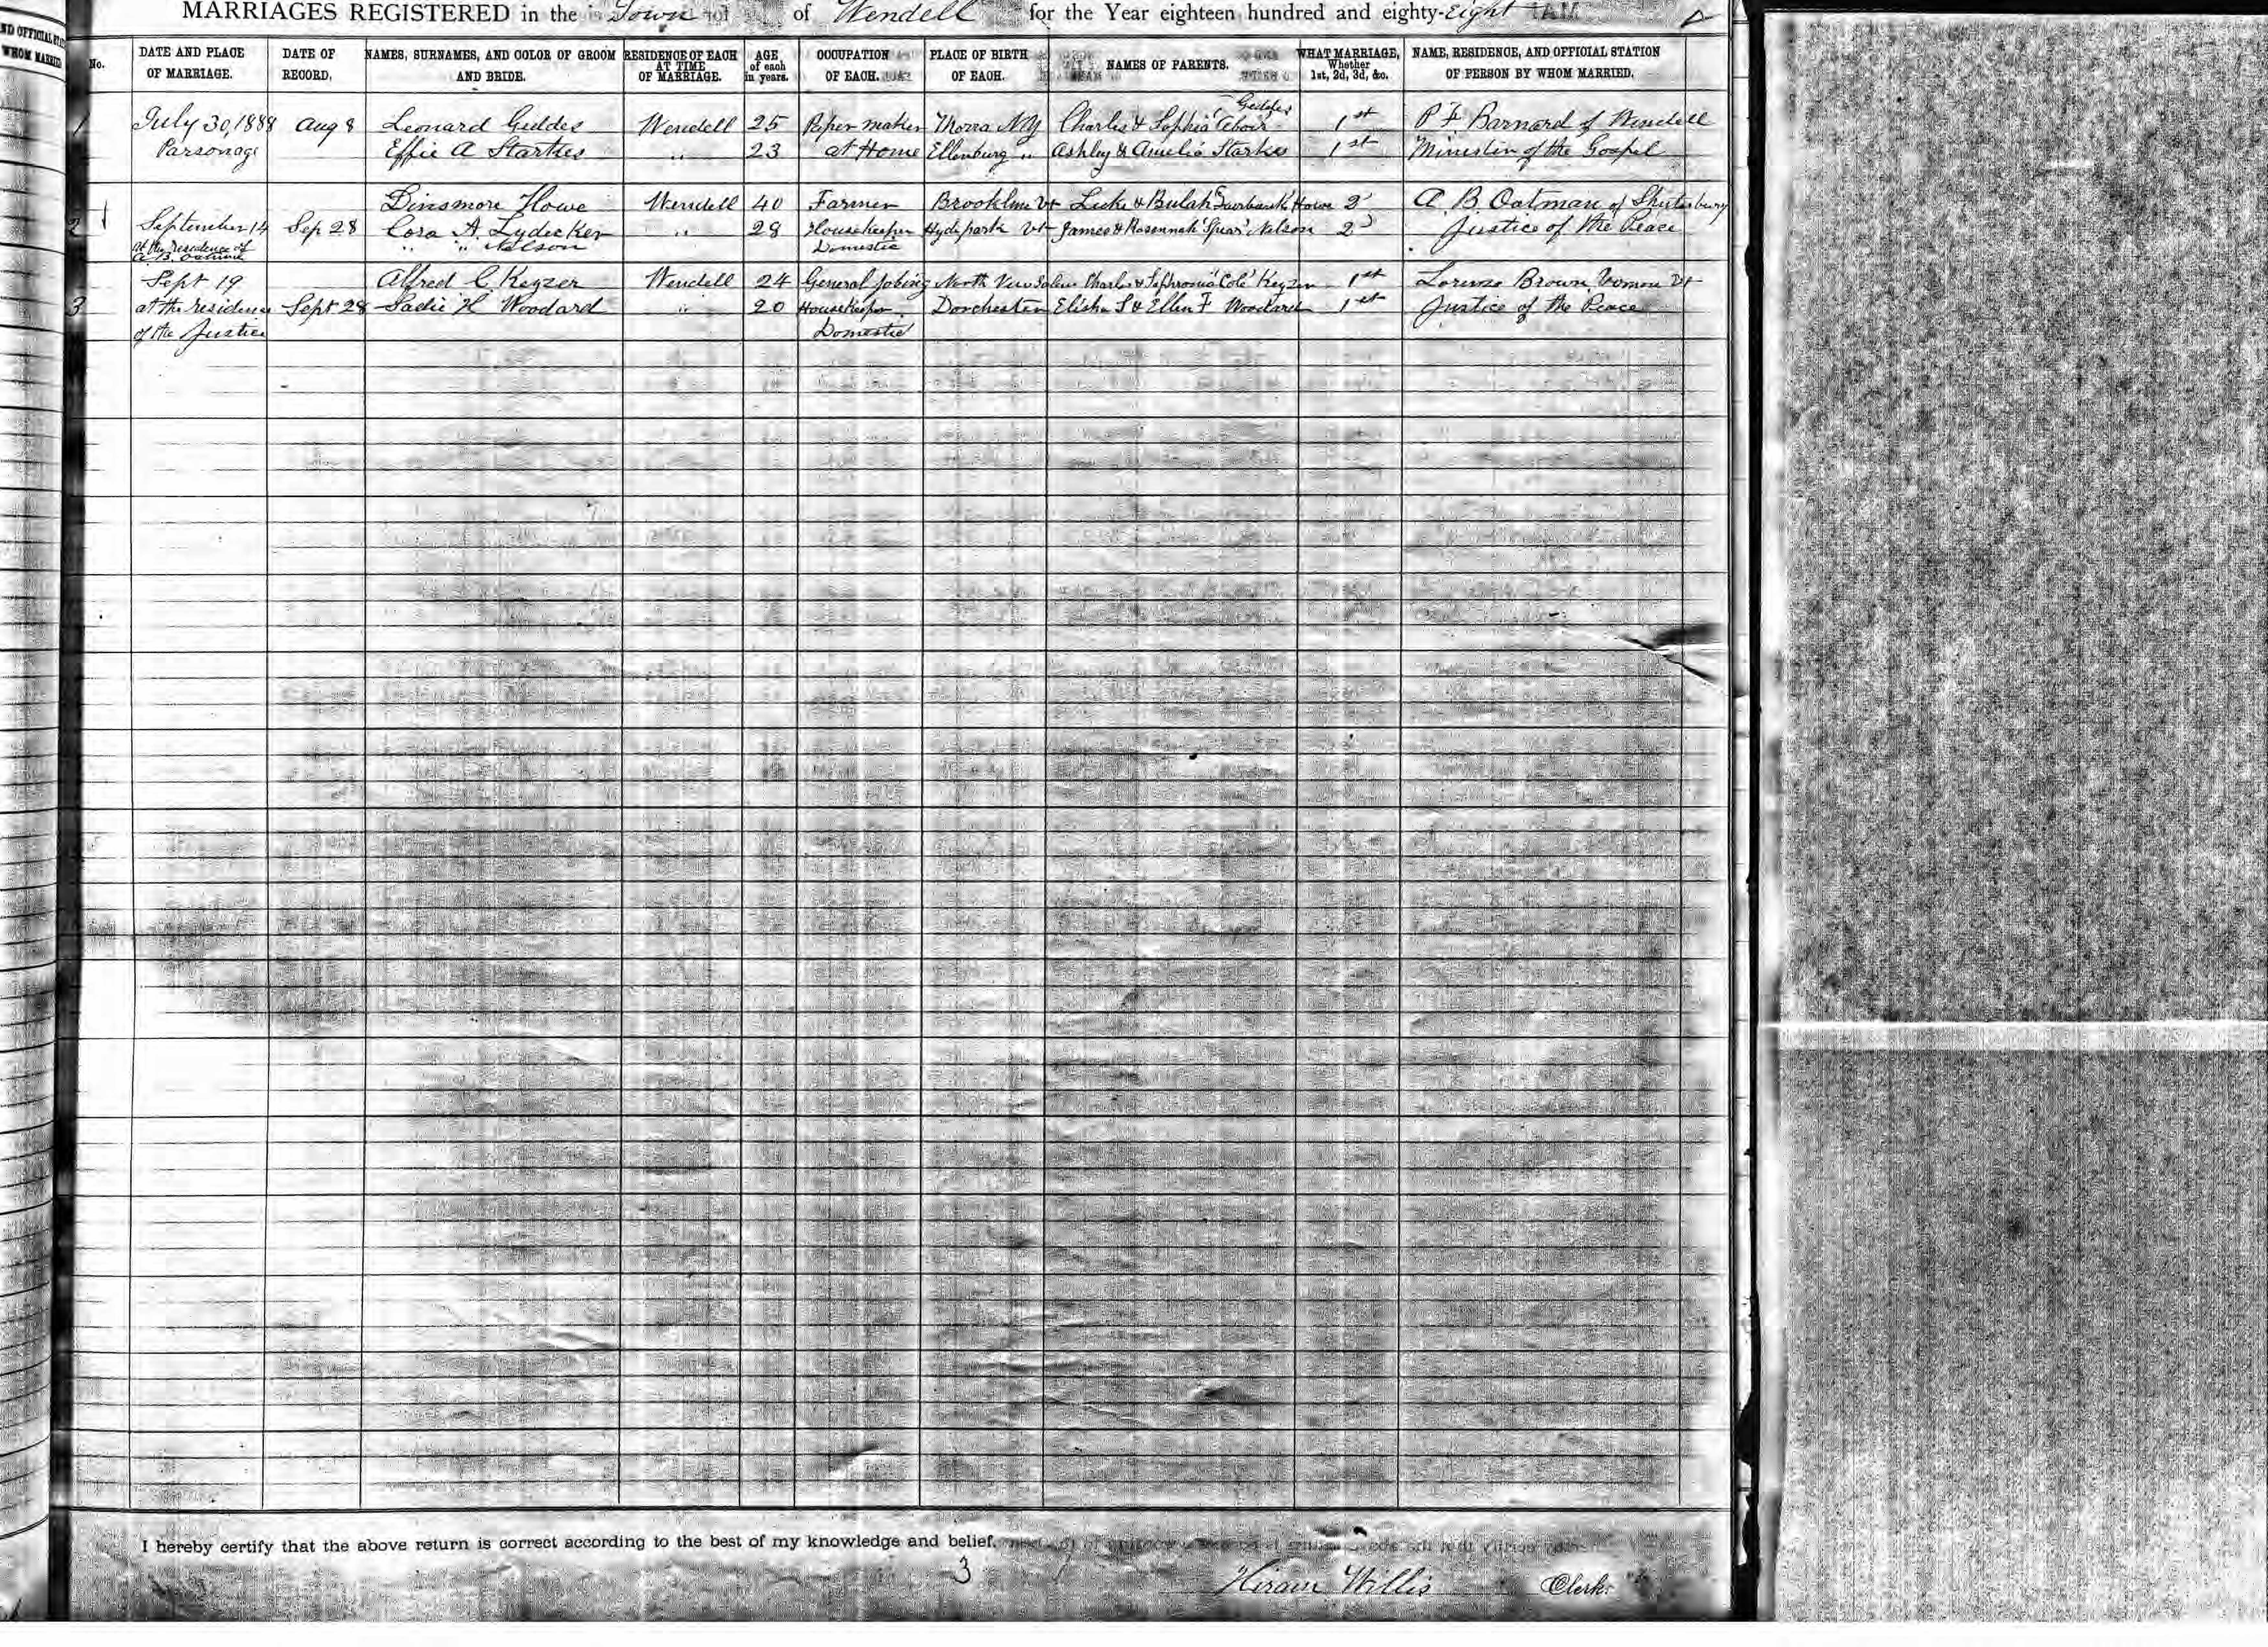 MARRIAGES REGISTERED in the Town of Wendell for the Year eighteen hundred and eighty-Eight
No.
DATE AND PLACE
OF MARRIAGE.
DATE OF
RECORD.
NAMES, SURNAMES, AND COLOR OF GROOM
AND BRIDE.
RESIDENCE OF EACH
AT TIME
OF MARRIAGE.
AGE
of each
in years.
OCCUPATION
OF EACH.
PLACE OF BIRTH
OF EACH.
NAMES OF PARENTS.
WHAT MARRIAGE,
Whether
1st, 2d, 3d, &c.
NAME, RESIDENCE, AND OFFICIAL STATION
OF PERSON BY WHOM MARRIED.
Geddes
1 July 30, 1888 Aug 8 Leonard Geddes Wendell 25 Paper maker NY Charles & Sophia 1st P F Barnard of Wendell
Parsonage Effie A Starkes " 23 at Home Ellenburg " Ashley & Amelia Starkes 1st Minister of the Gospel
Dinsmore Howe Wendell 40 Farmer Brookline Vt & Bulah Fairbank Howe 2d A. B. Oatman of Shutesbury
2 September 14 Sep 28 Cora A Lydecker " 28 Housekeeper Hydepark Vt James & Rosannah "Spear" Nelson 2d Justice of the Peace
at the residence of " " Nelson Domestic
A. B. Oatman
Sept 19 Alfred C Keyzer Wendell 24 General Jobing North New Salem Charles & Sophronia "Cole" Keyzer 1st Lorenzo Brown, Vernon Vt
3 at the residence Sept 28 Sadie H Woodard " 20 Housekeeper Dorchester Elisha S & Ellen F Woodard 1st Justice of the Peace
of the Justice Domestic
I hereby certify that the above return is correct according to the best of my knowledge and belief.
3
Hiram Willis Clerk.